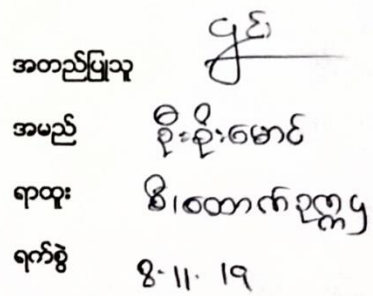 အတည်ပြုသူ
အမည် စိုးစိုးမောင်
ရာထူး ဒီ၊ထောက်ဥက္ကဌ
ရက်စွဲ 8.11.19